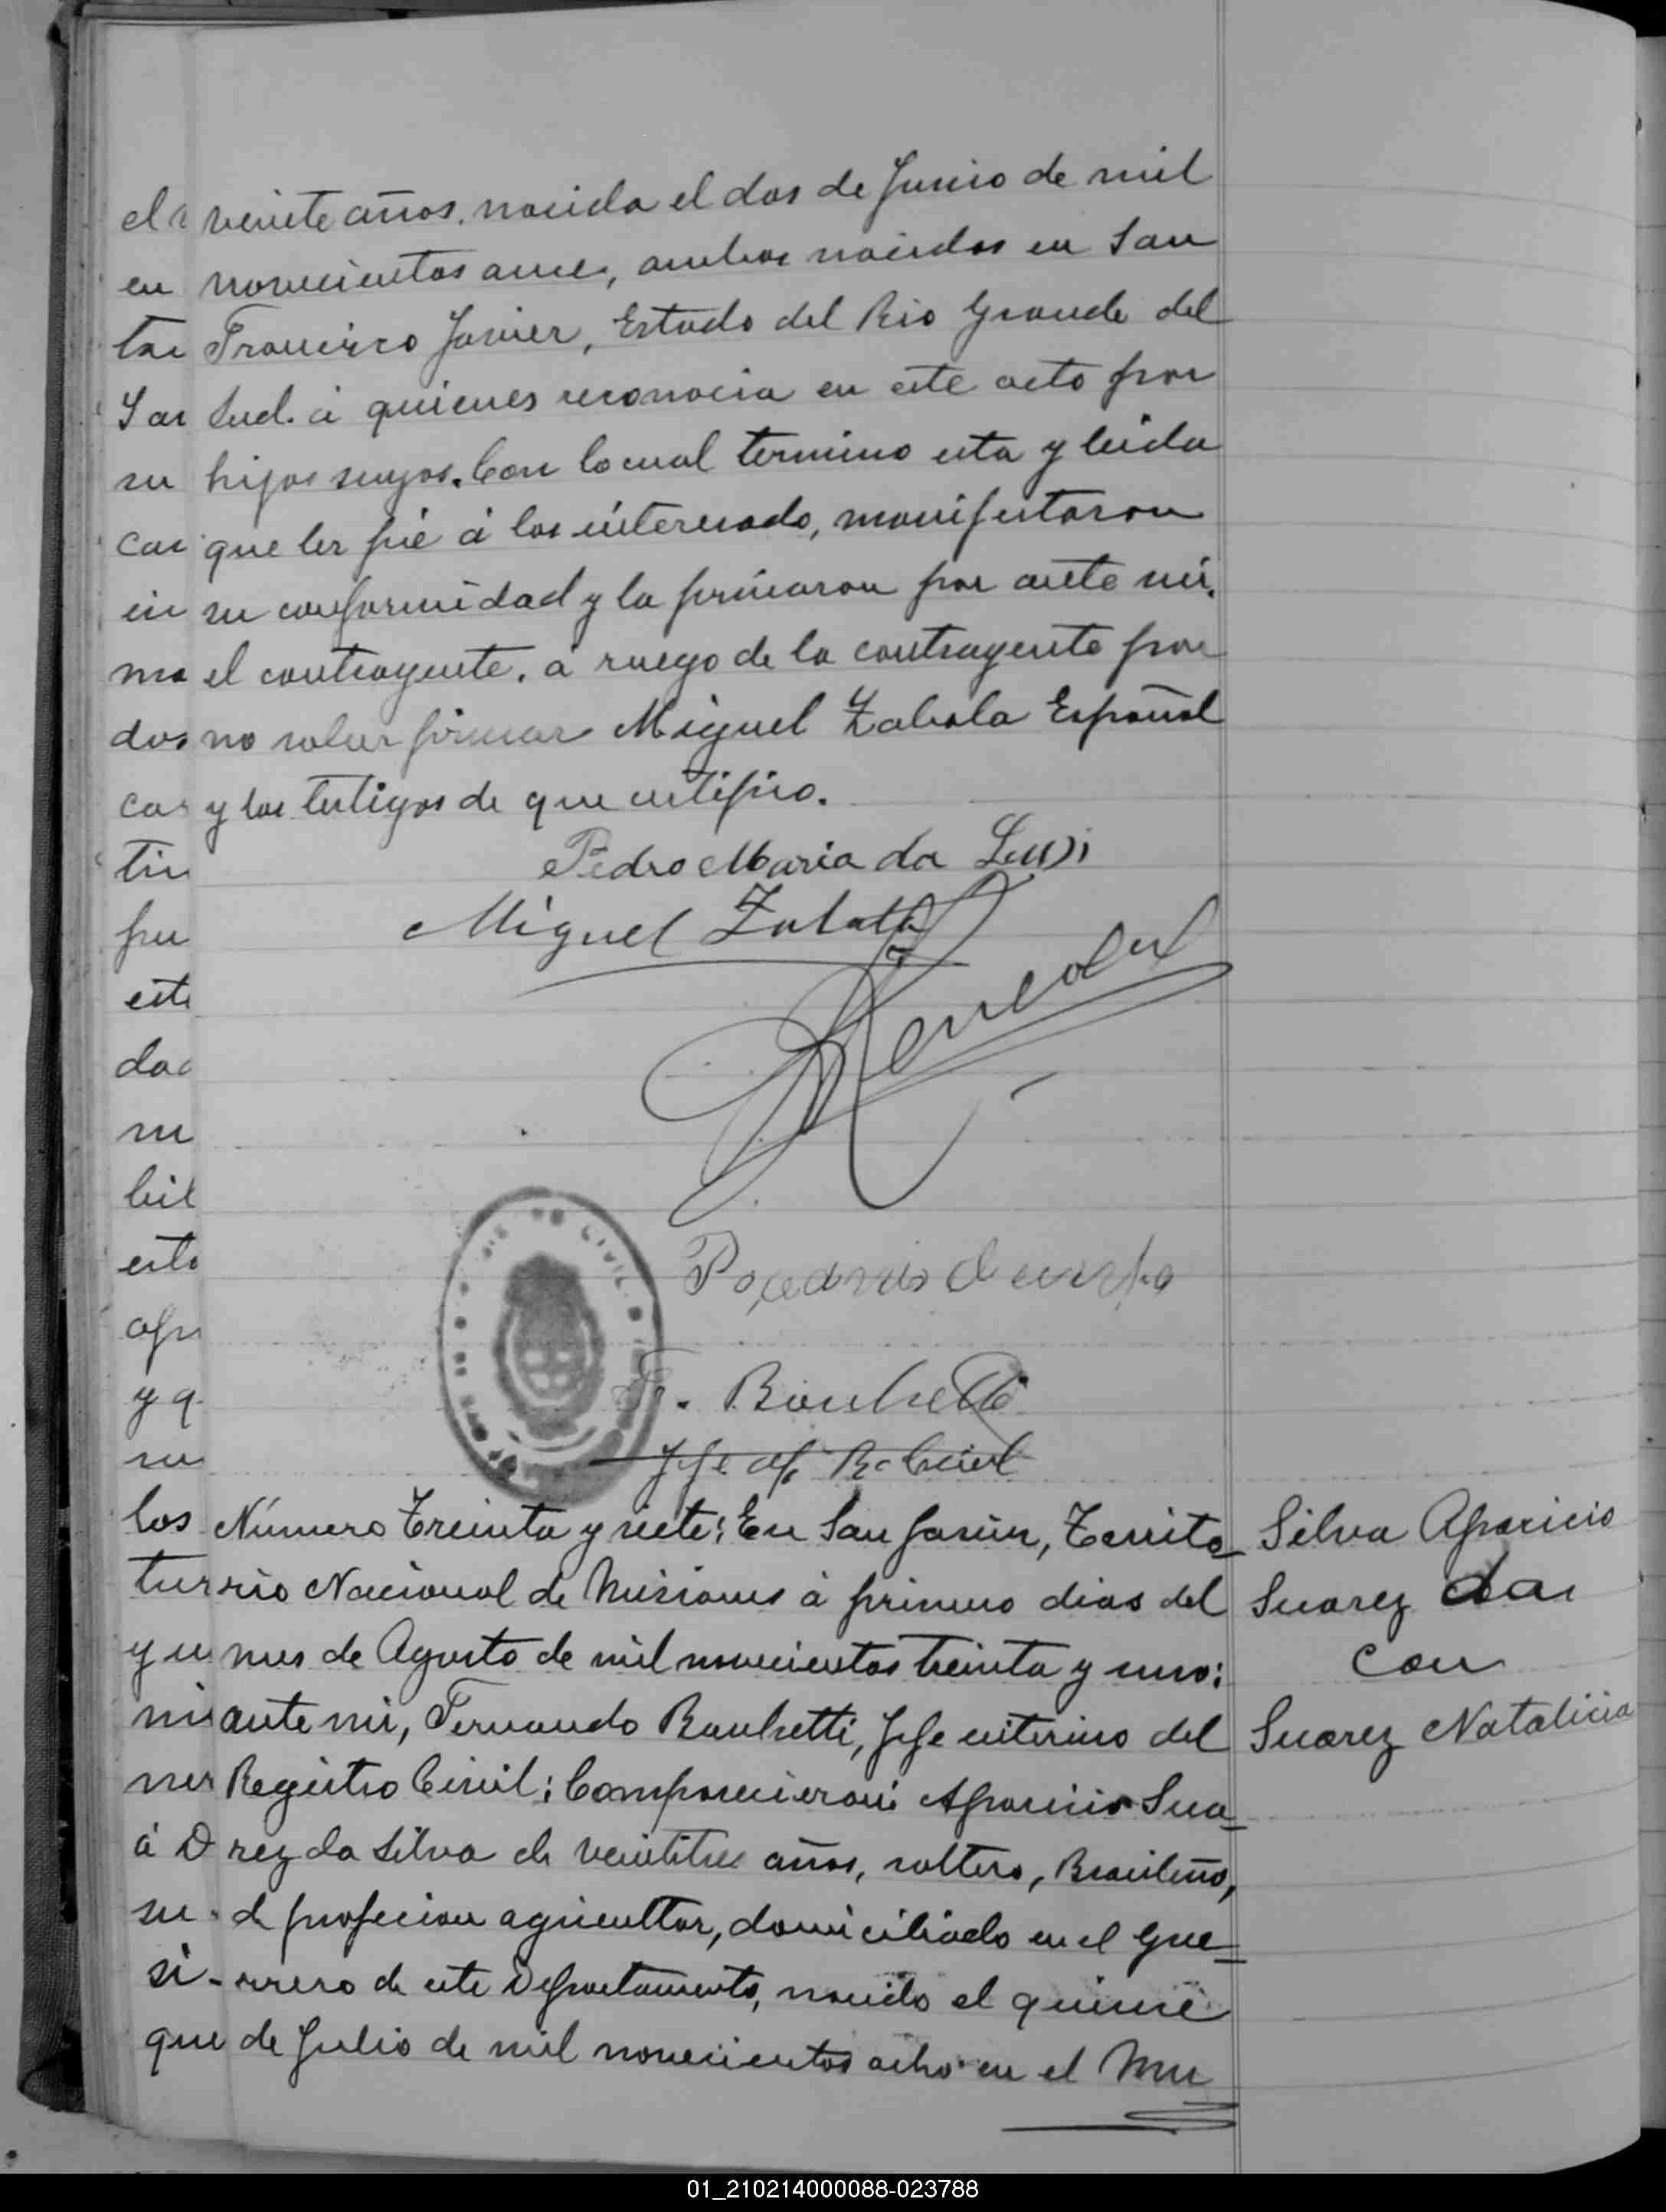 veinte años. nacida el dos de Junio de mil
novecientos once, ambos nacidos en San
Francisco Javier, Estado del Rio Grande del
Sud. á quienes reconocia en este acto por
hijos suyos. Con lo cual termino esta y leida
que les fué á los interesado, manifestaron
su conformidad y la firmaron por ante mi.
el contrayente. á ruego de la contrayente por
no saber firmar Miguel Zabala Español
y los testigos de que certifico.
Pedro Maria da
Miguel Zabala
F. Banchetti
Jefe of. R. Civil
Número Treinta y siete: En San Javier, Territo-
rio Nacional de Misiones á primero dias del
mes de Agosto de mil novecientos treinta y uno:
ante mi, Fernando Banchetti, Jefe interino del
Registro Civil: Comparecieron: Aparicio Sua-
rez da Silva de veintitres años, soltero, Brasileño,
de profecion agricultor, domiciliado en el Gue-
rrero de este Departamento, nacido el quince
de Julio de mil novecientos ocho en el Mu
Silva Aparicio
Suarez da
con
Suarez Natalicia
el
en
su
dos
este
su
esta
y q
su
los
tur
á D
su
si-
que
CIVIL
01_210214000088-023788